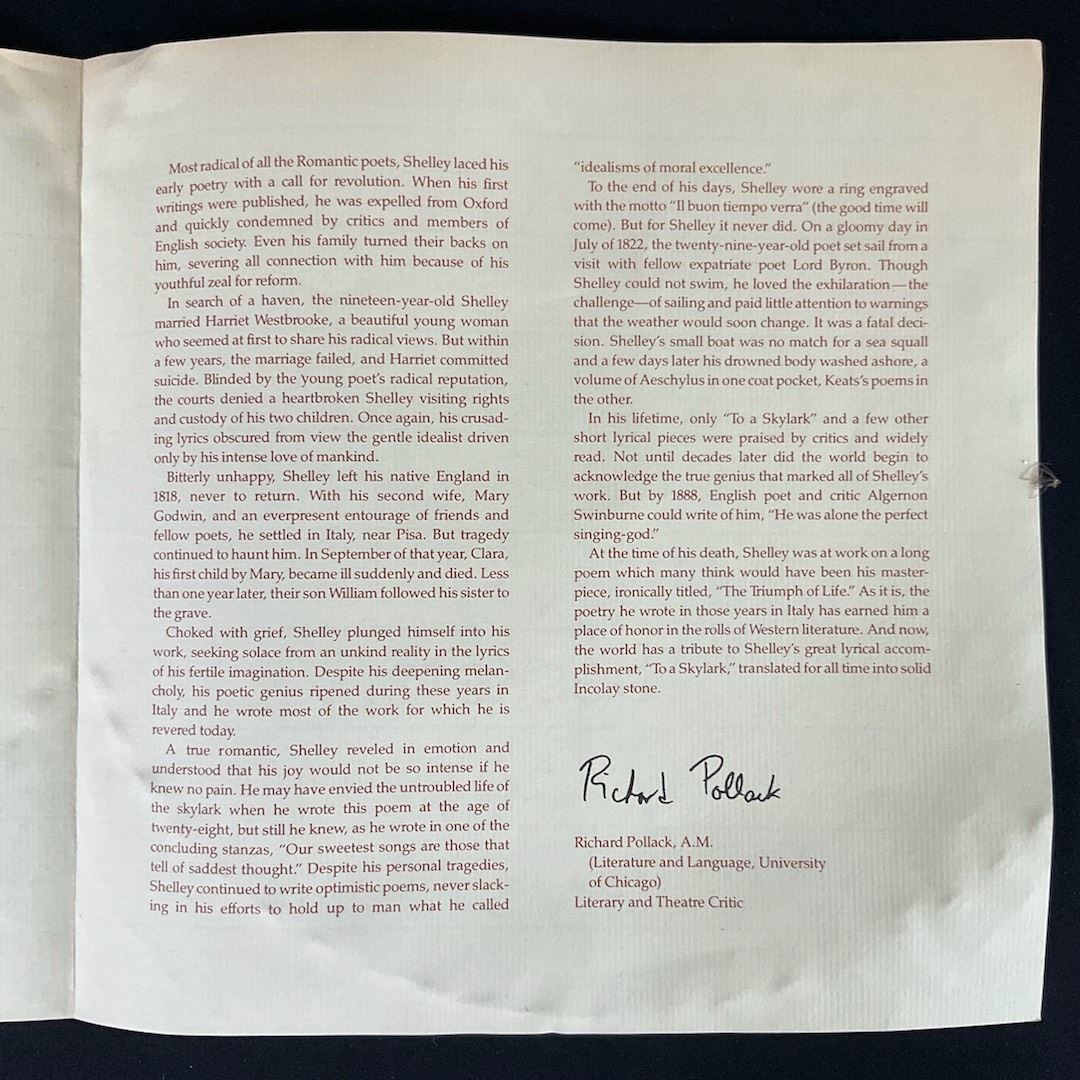 Most radical of all the Romantic poets, Shelley laced his
early poetry with a call for revolution. When his first
writings were published, he was expelled from Oxford
and quickly condemned by critics and members of
English society. Even his family turned their backs on
him, severing all connection with him because of his
youthful zeal for reform.
In search of a haven, the nineteen-year-old Shelley
married Harriet Westbrooke, a beautiful young woman
who seemed at first to share his radical views. But within
a few years, the marriage failed, and Harriet committed
suicide. Blinded by the young poet's radical reputation,
the courts denied a heartbroken Shelley visiting rights
and custody of his two children. Once again, his crusad-
ing lyrics obscured from view the gentle idealist driven
only by his intense love of mankind.
Bitterly unhappy, Shelley left his native England in
1818, never to return. With his second wife, Mary
Godwin, and an everpresent entourage of friends and
fellow poets, he settled in Italy, near Pisa. But tragedy
continued to haunt him. In September of that year, Clara,
his first child by Mary, became ill suddenly and died. Less
than one year later, their son William followed his sister to
the grave.
Choked with grief, Shelley plunged himself into his
work, seeking solace from an unkind reality in the lyrics
of his fertile imagination. Despite his deepening melan-
choly, his poetic genius ripened during these years in
Italy and he wrote most of the work for which he is
revered today.
A true romantic, Shelley reveled in emotion and
understood that his joy would not be so intense if he
knew no pain. He may have envied the untroubled life of
the skylark when he wrote this poem at the age of
twenty-eight, but still he knew, as he wrote in one of the
concluding stanzas, "Our sweetest songs are those that
tell of saddest thought." Despite his personal tragedies,
Shelley continued to write optimistic poems, never slack-
ing in his efforts to hold up to man what he called
"idealisms of moral excellence."
To the end of his days, Shelley wore a ring engraved
with the motto "Il buon tiempo verra" (the good time will
come). But for Shelley it never did. On a gloomy day in
July of 1822, the twenty-nine-year-old poet set sail from a
visit with fellow expatriate poet Lord Byron. Though
Shelley could not swim, he loved the exhilaration—the
challenge—of sailing and paid little attention to warnings
that the weather would soon change. It was a fatal deci-
sion. Shelley's small boat was no match for a sea squall
and a few days later his drowned body washed ashore, a
volume of Aeschylus in one coat pocket, Keats's poems in
the other.
In his lifetime, only "To a Skylark" and a few other
short lyrical pieces were praised by critics and widely
read. Not until decades later did the world begin to
acknowledge the true genius that marked all of Shelley's
work. But by 1888, English poet and critic Algernon
Swinburne could write of him, "He was alone the perfect
singing-god."
At the time of his death, Shelley was at work on a long
poem which many think would have been his master-
piece, ironically titled, "The Triumph of Life." As it is, the
poetry he wrote in those years in Italy has earned him a
place of honor in the rolls of Western literature. And now,
the world has a tribute to Shelley's great lyrical accom-
plishment, "To a Skylark," translated for all time into solid
Incolay stone.
Richard Pollack
Richard Pollack, A.M.
(Literature and Language, University
of Chicago)
Literary and Theatre Critic